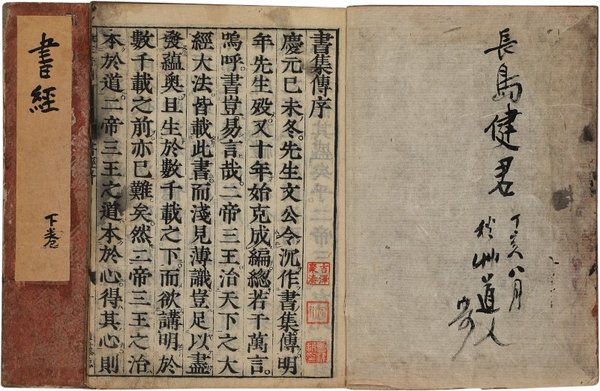 書經
下卷
書集傳序
慶元巳未冬。先生文公令沉作書集傳。明
年先生歿。又十年始克成編。總若干萬言。
嗚呼書豈易言哉。二帝三王治天下之大
經大法皆載此書。而淺見薄識豈足以盡
發蘊奧。且生於數千載之下。而欲講明於
數千載之前。亦巳難矣。然二帝三王之治
本於道。二帝三王之道本於心。得其心。則
長島健君
丁亥八月
道人